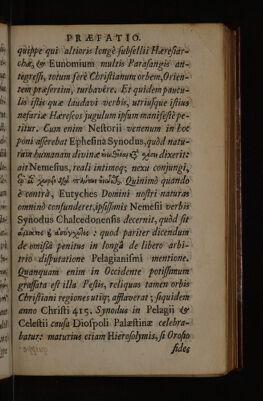 PRÆFATIO.
quippe qui altioris longè subsellii Hæresiar-
chæ, & Eunomium multis Parasangis an-
tegressi, totum ferè Christianum orbem, Orien-
tem præsertim, turbavêre. Et quidem paucu-
lis istis quæ laudavi verbis, utriusque istius
nefariæ Hæreseos jugulum ipsum manifestè pe-
titur. Cum enim Nestorii venenum in hoc
poni asserebat Ephesina Synodus, quòd natu-
ram humanam divinæ dixerit:
ait Nemesius, reali intimoq; nexu conjungi,
Quinimò quando
è contrà, Eutyches Domini nostri naturas
omnino confunderet, ipsissimis Nemesii verbis
Synodus Chalcedonensis decernit, quòd sit
: quod pariter dicendum
de omissâ penitus in longâ de libero arbi-
trio disputatione Pelagianismi mentione.
Quanquam enim in Occidente potissimum
grassata est illa Pestis, reliquas tamen orbis
Christiani regiones utiq; afflaverat; siquidem
anno Christi 415. Synodus in Pelagii &
Celestii causa Diospoli Palæstinæ celebra-
batur: maturius etiam Hierosolymis, si Orosio
fides